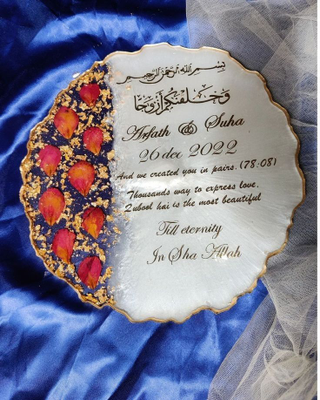 بسم الله الرحمن الرحيم
وخلقنكم أزوجا
Arfath & Suha
26 dec 2022
And we created you in pairs. (78:08)
Thousands way to express love,
Qubool hai is the most beautiful
Till eternity
In Sha Allah